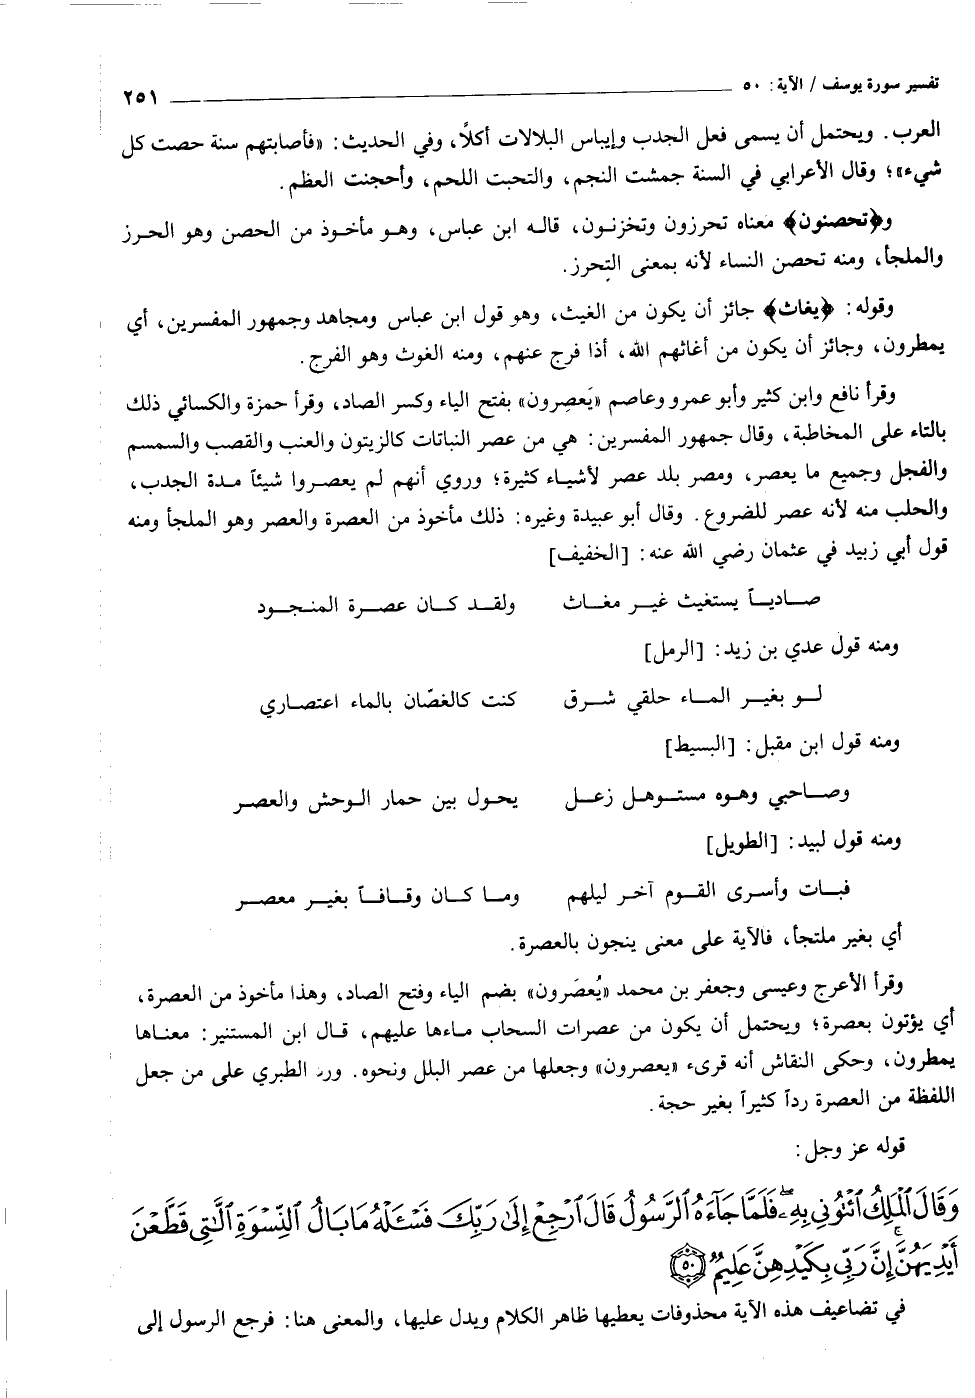 تفسير سورة يوسف / الآية: ٥٠ ٢٥١
العرب. ويحتمل أن يسمى فعل الجدب وإيباس البلالات أكلاً، وفي الحديث: «فأصابتهم سنة حصت كل
شيء»؛ وقال الأعرابي في السنة جمشت النجم، والتحبت اللحم، وأحجنت العظم.
و﴿تحصنون﴾ معناه تحرزون وتخزنون، قاله ابن عباس، وهو مأخوذ من الحصن وهو الحرز
والملجأ، ومنه تحصن النساء لأنه بمعنى التحرز.
وقوله: ﴿يغاث﴾ جائز أن يكون من الغيث، وهو قول ابن عباس ومجاهد وجمهور المفسرين، أي
يمطرون، وجائز أن يكون من أغاثهم الله، أذا فرج عنهم، ومنه الغوث وهو الفرج.
وقرأ نافع وابن كثير وأبو عمرو وعاصم «يَعصِرون» بفتح الياء وكسر الصاد، وقرأ حمزة والكسائي ذلك
بالتاء على المخاطبة، وقال جمهور المفسرين: هي من عصر النباتات كالزيتون والعنب والقصب والسمسم
والفجل وجميع ما يعصر، ومصر بلد عصر لأشياء كثيرة؛ وروي أنهم لم يعصروا شيئاً مدة الجدب،
والحلب منه لأنه عصر للضروع. وقال أبو عبيدة وغيره: ذلك مأخوذ من العصرة والعصر وهو الملجأ ومنه
قول أبي زبيد في عثمان رضي الله عنه: [الخفيف]
صاديـاً يستغيث غير مغاث ولقد كان عصرة المنجود
ومنه قول عدي بن زيد: [الرمل]
لو بغير الماء حلقي شرق كنت كالغصّان بالماء اعتصاري
ومنه قول ابن مقبل: [البسيط]
وصاحبي وهوه مستوهل زعل يحول بين حمار الوحش والعصر
ومنه قول لبيد: [الطويل]
فبات وأسرى القوم آخر ليلهم وما كان وقافاً بغير معصر
أي بغير ملتجأ، فالآية على معنى ينجون بالعصرة.
وقرأ الأعرج وعيسى وجعفر بن محمد «يُعصَرون» بضم الياء وفتح الصاد، وهذا مأخوذ من العصرة،
أي يؤتون بعصرة؛ ويحتمل أن يكون من عصرات السحاب ماءها عليهم، قال ابن المستنير: معناها
يمطرون، وحكى النقاش أنه قرىء «يعصرون» وجعلها من عصر البلل ونحوه. ورد الطبري على من جعل
اللفظة من العصرة رداً كثيراً بغير حجة.
قوله عز وجل:
وَقَالَ ٱلْمَلِكُ ٱئْتُونِي بِهِۦ ۖ فَلَمَّا جَآءَهُ ٱلرَّسُولُ قَالَ ٱرْجِعْ إِلَىٰ رَبِّكَ فَسْـَٔلْهُ مَا بَالُ ٱلنِّسْوَةِ ٱلَّـٰتِي قَطَّعْنَ
أَيْدِيَهُنَّ ۚ إِنَّ رَبِّي بِكَيْدِهِنَّ عَلِيمٌ ۝٥٠
في تضاعيف هذه الآية محذوفات يعطيها ظاهر الكلام ويدل عليها، والمعنى هنا: فرجع الرسول إلى